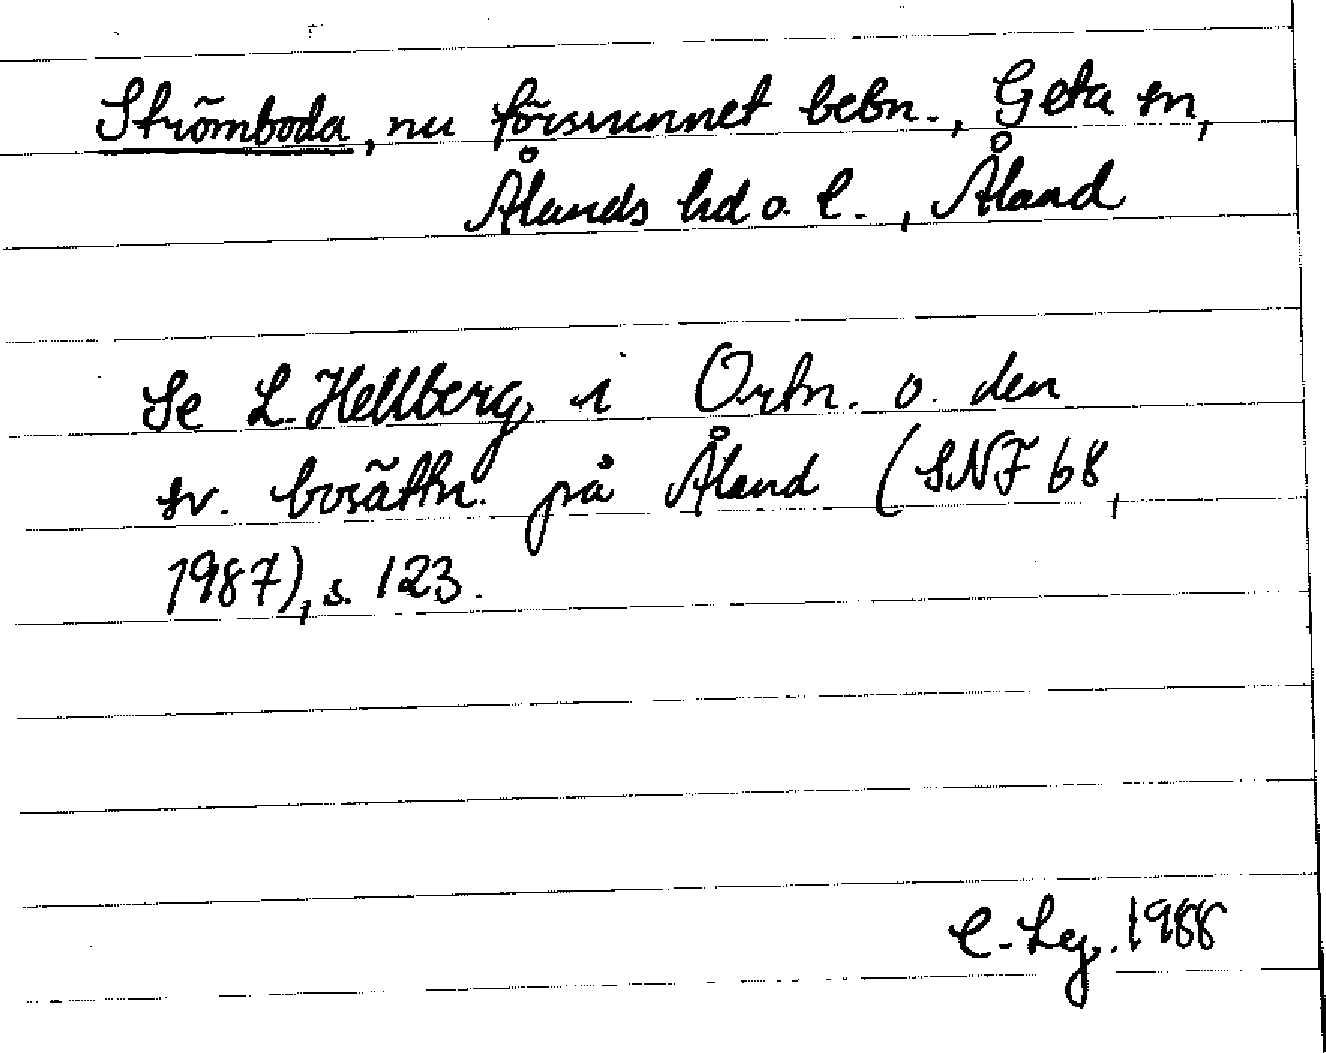 Strömboda, nu försvunnet bebn., Geta sn,
Ålands hd o. l., Åland
Se L. Hellberg i Ortn. o. den
sv. bosättn. på Åland (SNF 68,
1987), s. 123.
1988